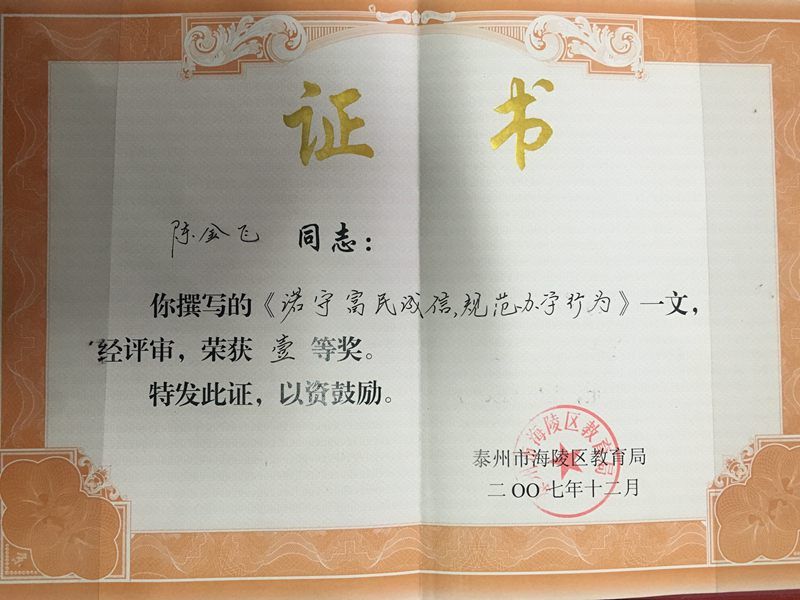 证 书
陈金飞 同志：
你撰写的《诺守富民诚信,规范办学行为》一文，
经评审，荣获 壹 等奖。
特发此证，以资鼓励。
泰州市海陵区教育局
泰州市海陵区教育局
二〇〇七年十二月